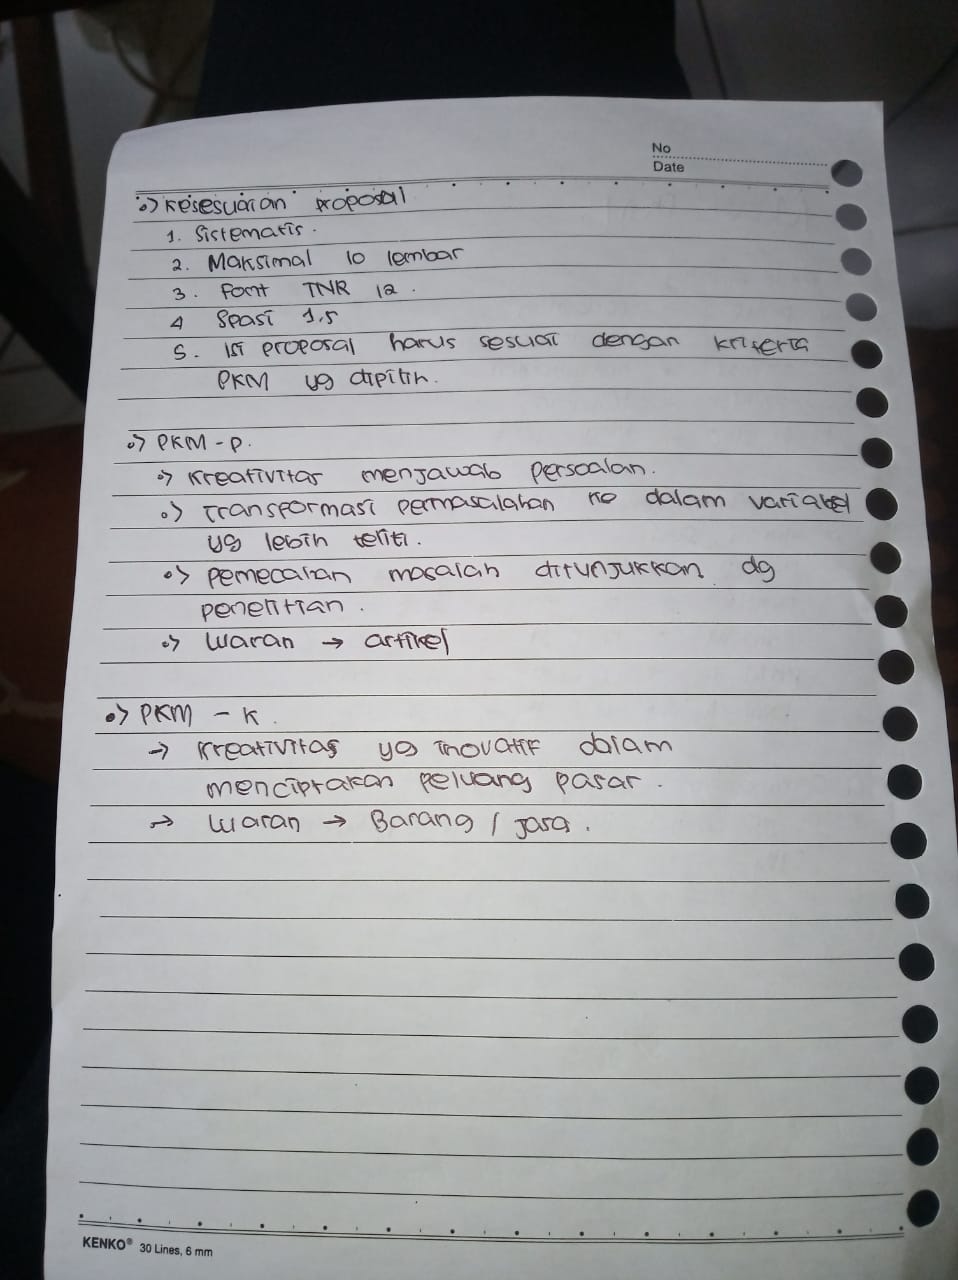 No
Date
•> Kesesuaian proposal
1. Sistematis.
2. Maksimal 10 lembar
3. Font TNR 12.
4 Spasi 1,5
5. Isi proposal harus sesuai dengan kriteria
PKM yg dipilih.
•> PKM - P.
•> Kreativitas menjawab persoalan.
•> Transformasi permasalahan ke dalam variabel
yg lebih teliti.
•> pemecahan masalah ditunjukkan dg
penelitian.
•> luaran → artikel
•> PKM - K.
→ Kreativitas yg inovatif dalam
menciptakan peluang pasar.
→ luaran → Barang / jasa.
KENKO® 30 Lines, 6 mm